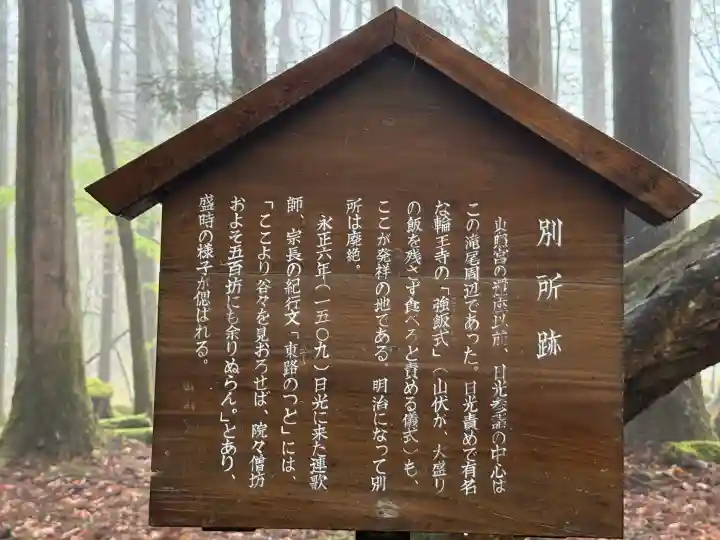 別所跡
東照宮の遷座以前、日光参詣の中心は
この滝尾周辺であった。日光責めで有名
な輪王寺の「強飯式」(山伏が、大盛り
の飯を残さず食べろと責める儀式)も、
ここが発祥の地である。明治になって別
所は廃絶。
永正六年(一五〇九)日光に来た連歌
師、宗長の紀行文「東路のつと」には、
「ここより谷々を見おろせば、院々僧坊
およそ五百坊にも余りぬらん。」とあり、
盛時の様子が偲ばれる。